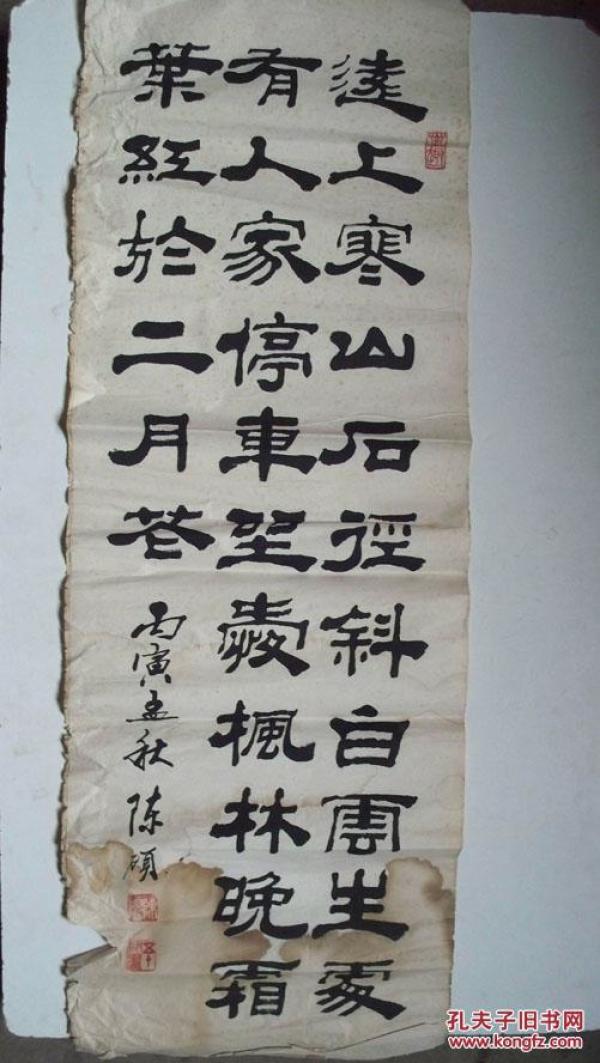 遠上寒山石徑斜白雲生處
有人家停車坐愛楓林晚霜
葉紅於二月花 丙寅孟秋 陈硕
孔夫子旧书网
www.kongfz.com